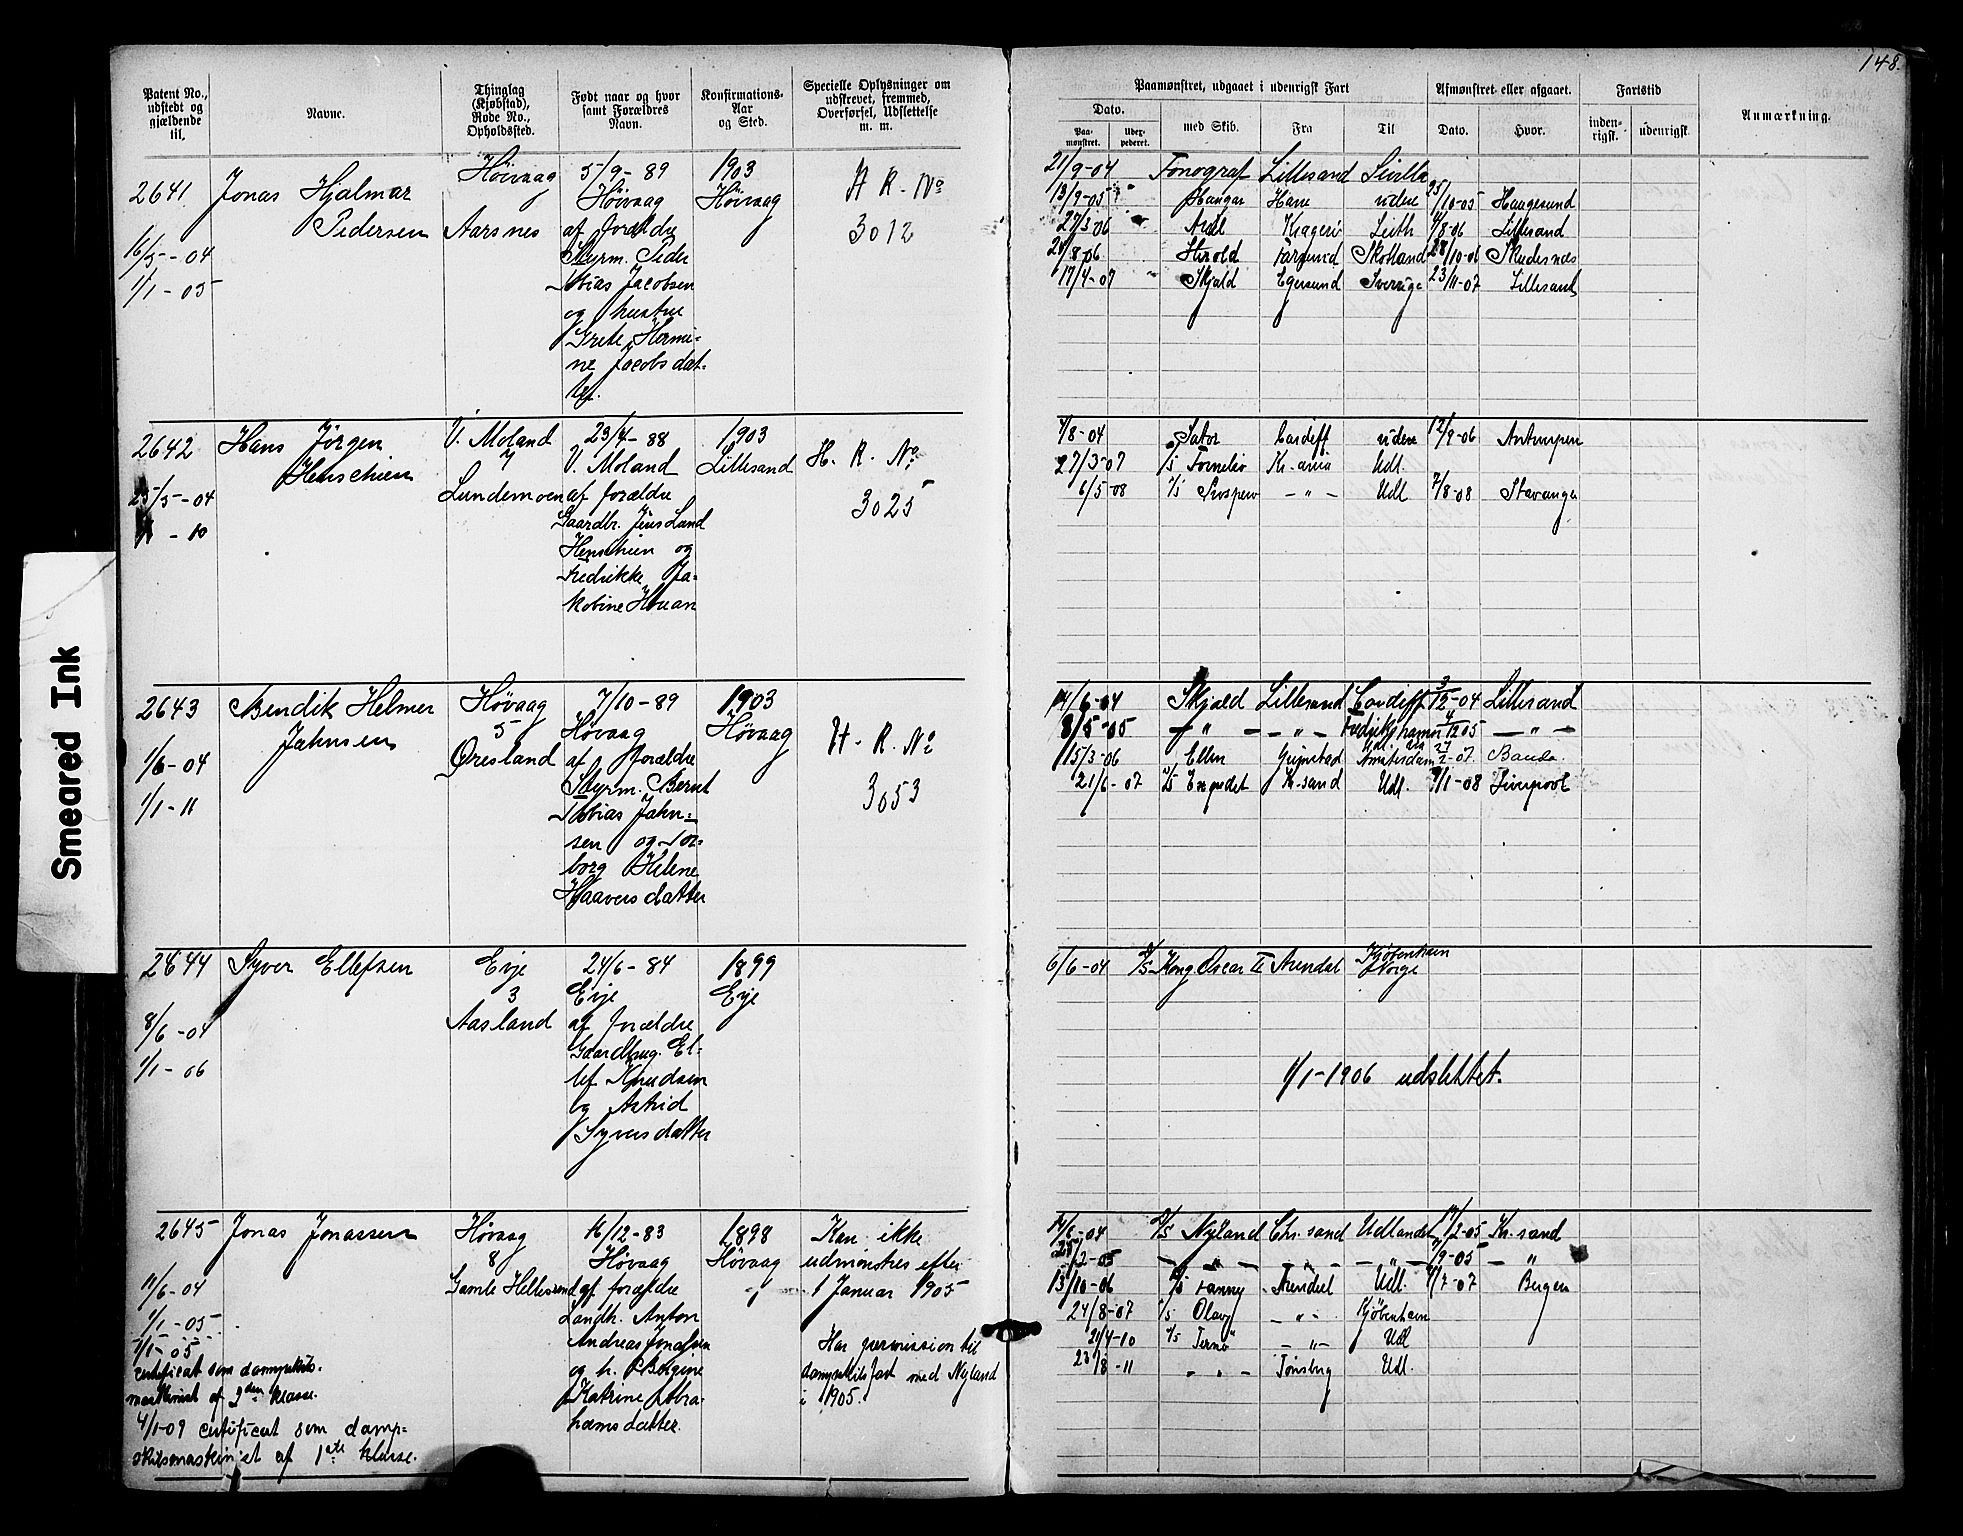 148.
Patent No., udstedt og gjældende til.
Navne.
Thinglag (Kjøbstad), Rode No., Opholdssted.
Født naar og hvor samt Forældres Navn.
Konfirmations-Aar og Sted.
Specielle Oplysninger om udskrevet, fremmed, Overførsel, Udslettelse m. m.
Paamønstret, udgaaet i udenrigsk Fart
Afmønstret eller afgaaet.
Fartstid
Anmærkning.
Dato.
Paa-mønstret.
Uder-pederet.
med Skib.
Fra
Til
Dato.
Hvor.
inden-rigsk.
udenrigsk.
2641.
16/5-04
1/1-05
Jonas Hjalmar
Pedersen
Høivaag
Aarsnes
5/9-89
Høvaag
af forældre
Styrm. Peder
Tobias Jacobsen
og hustru
Grete Hermi-
ne Jacobsdat-
ter.
1903
Høivaag
H R. No
3012
21/9-04 Fonograf Lillesand Sevilla
13/9-05 Havre videre 25/10-05 Haugesund
27/3-06 Axel Kragerø Leith 4/8-06 Lillesand
8-06 Herold Farsund Skotland 28/10-06 Skudesnes
17/4-07 Skjald Egersund Sverige 23/11-07 Lillesand
2642
25/5-04
- 10
Hans Jørgen
Henschien
V. Moland
7
Lundemoen
23/4-88
V. Moland
af forældre
Gaardbr. Jens Lund
Henschien og
Fredrikke Ja-
kobine
1903
Lillesand
H. R. No
3025
4/8-04 Sator Cardeff videre 12/9-06 Antwerpen
27/3-07 Fornebo Kr.ania Udl.
6/5-08 Prospero - " - Udl 7/8-08 Stavanger
2643
1/6-04
1/1-11
Bendik Helmer
Jahnsen
Høvaag
5
Øresland
7/10-89
Høvaag
af forældre
Styrm. Bernt
Tobias Jahn-
sen og Tor-
borg Helene
Haaversdatter
1903
Høvaag
H. R. No
3053
14/6-04 Skjald Lillesand Cardeff 3/12-04 Lillesand
8/5-05 - " - - " - Fredrikshamn 4/12 05 - " -
15/3-06 Ellen Grimstad Amsterdam 27/2-07
21/6-07 Kr.sand Udl. 9/1-08 Liverpool
2644
8/6-04
1/1-06
Syver Ellefsen
Evje
3
Aasland
24/6-84
Evje
af forældre
Gaardbrug. El-
lef Knudsen
og Astrid
Syversdatter
1899
Evje
6/6-04 D/S Kong Oscar II Arendal Kjøbenhavn
Norge
1/1-1906 udslettet.
2645
11/6-04
1/1-05
1/1-05
certifikat som dampskibs-
maskinist af 2den klasse.
4/1-09 certificat som damp-
skibsmaskinist af 1ste klasse.
Jonas Jonassen
Høvaag
8
Gamle Hellesund
16/12-83
Høvaag
af forældre
Landh. Anton
Andreas Jonassen
og h. Bolgine
Katrine Abra-
hamsdatter.
1898
Høvaag
Kan ikke
udmønstres efter
1 Januar 1905
Har permission til
dampskibsfart med Nyland
i 1905.
14/6-04 D/S Nyland Chr.sand Udlandet 11/2-05 Kr.sand
/2-05 - " - - " - - " - /9-05 - "
13/10-06 Fanny Arendal Udl. 4/7-07 Bergen
24/8-07 Olaug - " - Kjøbenhavn
21/4-10 Ternø - " - Udl
23/8-11 - " - Tønsberg Udl.
Smeared Ink